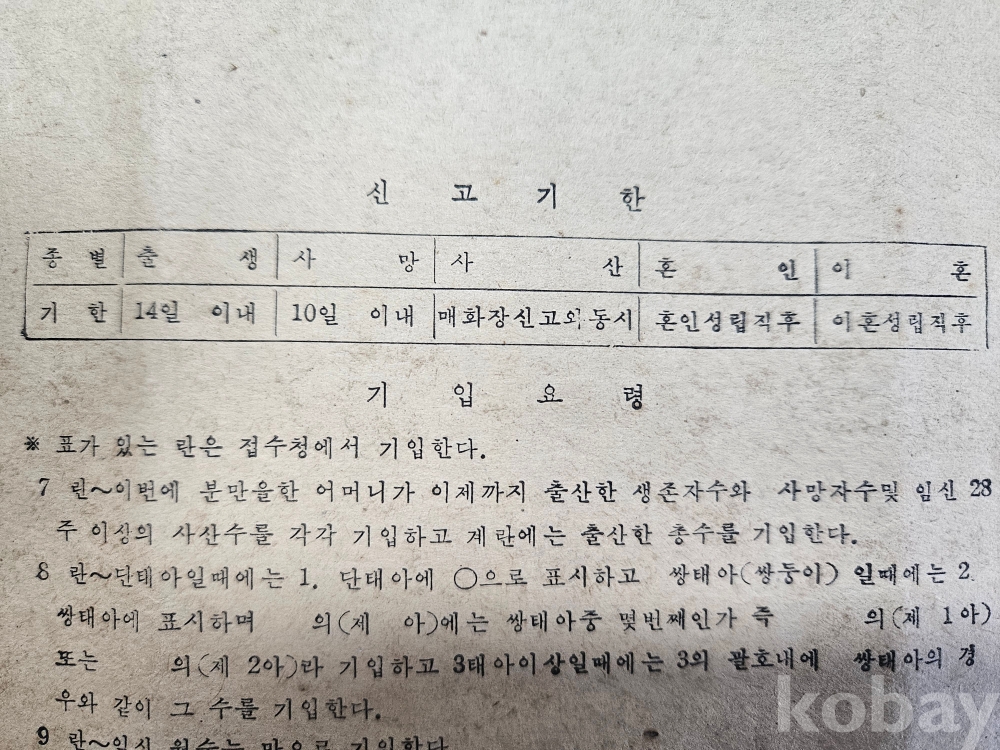 신 고 기 한
종 별 출 생 사 망 사 산 혼 인 이 혼
기 한 14일 이내 10일 이내 매화장신고와 동시 혼인성립직후 이혼성립직후
기 입 요 령
※ 표가 있는 란은 접수청에서 기입한다.
7 란~이번에 분만을한 어머니가 이제까지 출산한 생존자수와 사망자수및 임신 28
주 이상의 사산수를 각각 기입하고 계란에는 출산한 총수를 기입한다.
8 란~단태아일때에는 1. 단태아에 ○으로 표시하고 쌍태아(쌍둥이) 일때에는 2.
쌍태아에 표시하며 의(제 아)에는 쌍태아중 몇번째인가 즉 의(제 1아)
또는 의(제 2아)라 기입하고 3태아이상일때에는 3의 괄호내에 쌍태아의 경
우와 같이 그 수를 기입한다.
9 란~임신 월수는 만으로 기입한다
kobay